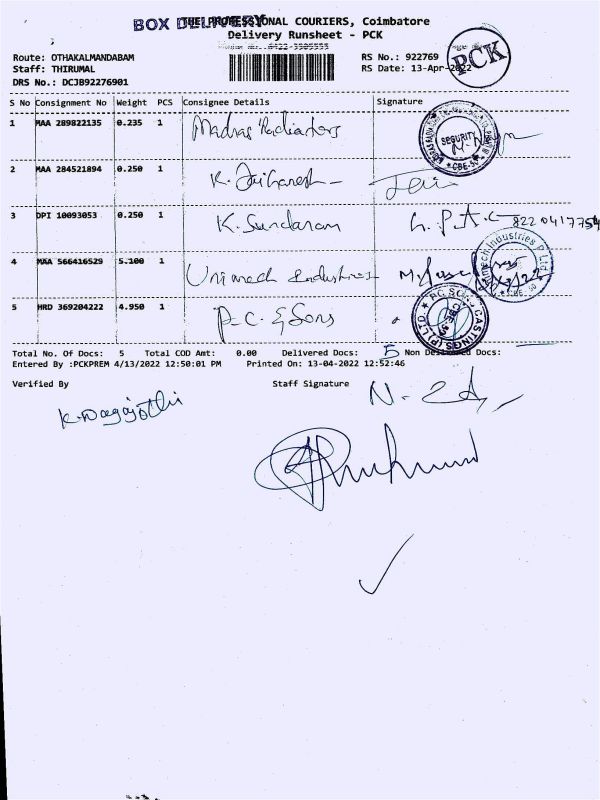 BOX DELIVERY
THE PROFESSIONAL COURIERS, Coimbatore
Delivery Runsheet - PCK
Route: OTHAKALMANDABAM
RS No.: 922769
Staff: THIRUMAL
RS Date: 13-Apr-2022
PCK
DRS No.: DCJB92276901
S No Consignment No Weight PCS Consignee Details Signature
1 MAA 289822135 0.235 1 Madras Radiators
SECURITY
2 MAA 284521894 0.250 1 K. Jaiganesh Jai
3 DPI 10093053 0.250 1 K. Sundaram
4 MAA 566416529 5.100 1 Unimech Industries
5 HRD 369204222 4.950 1 P.C. & Sons
Total No. Of Docs: 5 Total COD Amt: 0.00 Delivered Docs: 5 Non Delivered Docs:
Entered By :PCKPREM 4/13/2022 12:50:01 PM Printed On: 13-04-2022 12:52:46
Verified By Staff Signature